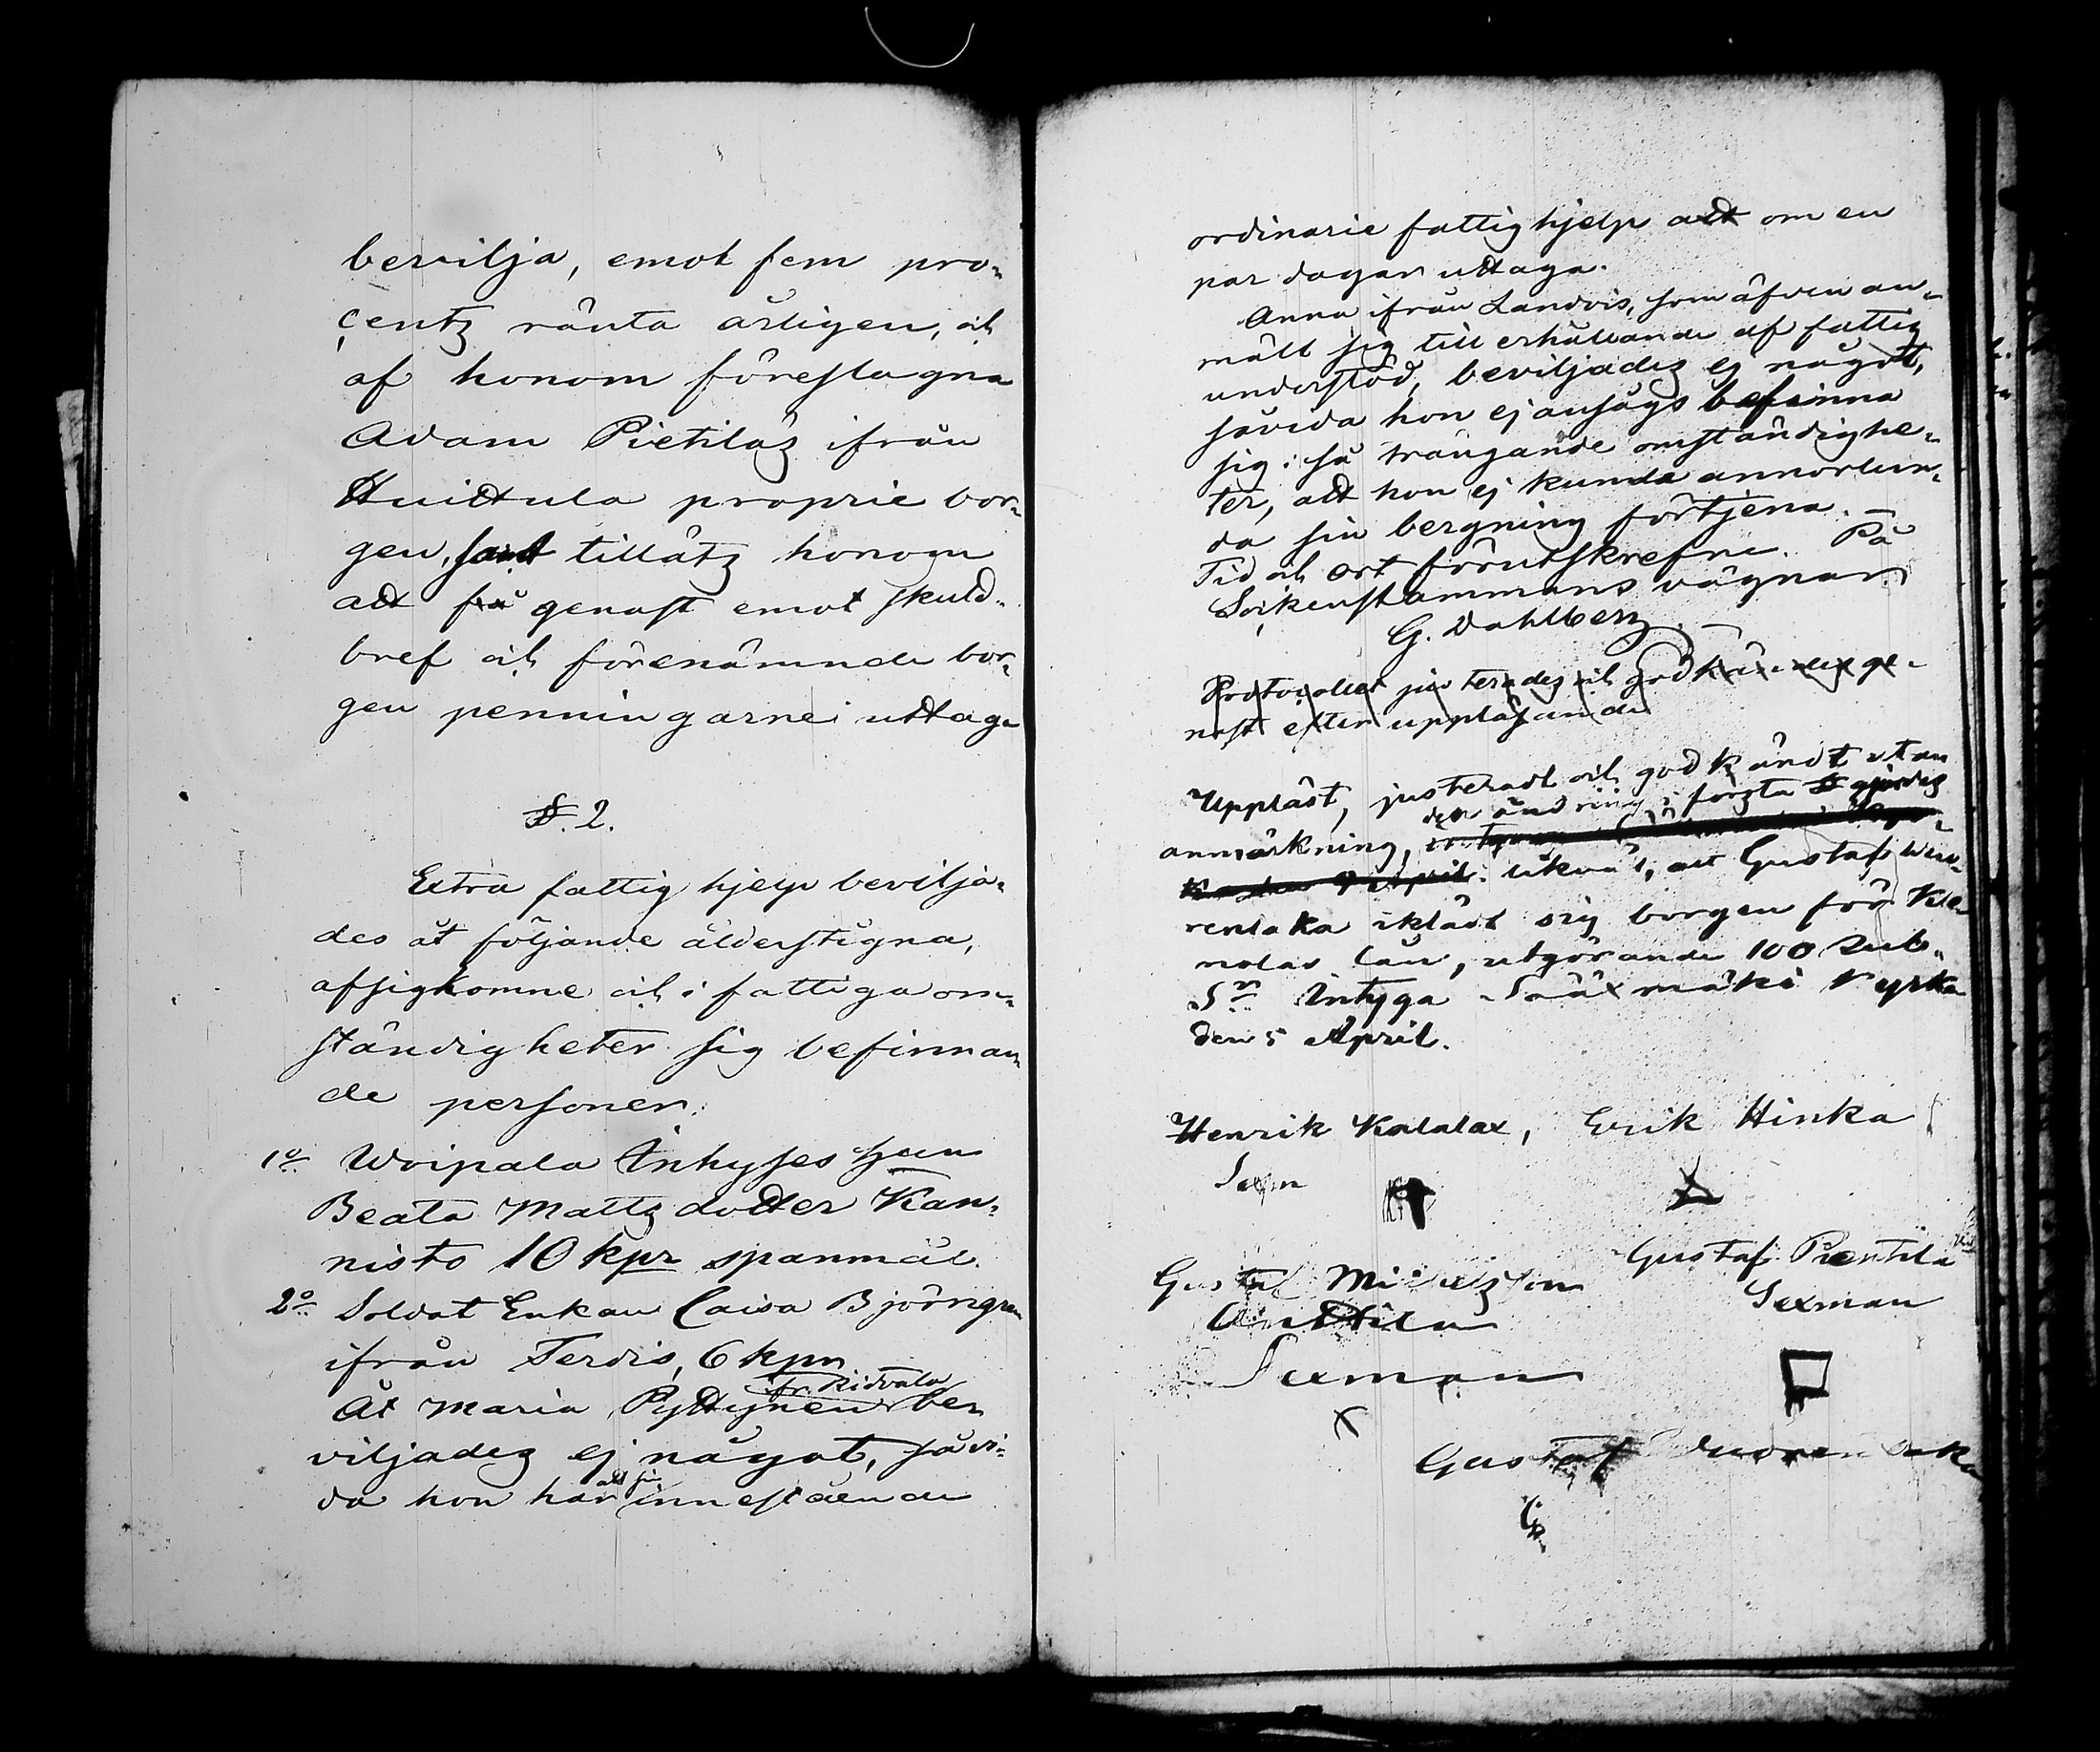 bevilja, emot fem pro-
centz ränta årligen, och
af honom föreslagna
Adam Pietiläz ifrån
Huittula proprie bor-
gen, samt tillåtz honom
att få genast emot skuld-
bref och förenämnde bor-
gen penningarne uttaga
§. 2.
Extra fattig hjelp bevilja-
des åt följande ålderstigna,
afsigkomne och i fattiga om-
ständigheter sig befinnan-
de personer:
1o Woipala Inhyses hjon
Beata Mattz dotter Kan-
nisto 10 kpr spanmål.
2o Soldat Enkan Caisa Björngren
ifrån Terdis, 6 kpr
fr. Ridvala
Åt Maria Pyttynen be-
viljadez ej något, såvi-
att sin
da hon har innestående
ordinarie fattighjelp att om en
par dagar uttaga.
Anna ifrån Landvis, som äfven an-
mält sig till erhållande af fattig
understöd, beviljadez ej något,
såvida hon ej ansågs befinna
sig i så trängande omständighe-
ter, att hon ej kunde annorlun-
da sin bergning förtjena. —
Tid och ort förutskrefne. På
Sockenstämmans vägnar
G. Dahlberg. —
Protocollet justeradez och godkändez ge-
nast efter uppläsande
Uppläst, justeradt och godkändt utan
den ändring i första § gjordez
anmärkning,
April. likväl, att Gustaf Wuo-
rentaka iklädt sig borgen för
nolas lån, utgörande 100 Rub.
Sr Intyga Sääxmäki Kyrka
den 5 April.
Henrik Kalalax, Erik Hinka
Sexm
Gustaf Pentilä
Gustaf Michelsson
Sexman
Anttila
Sexman
Gustaf Wuorentaka